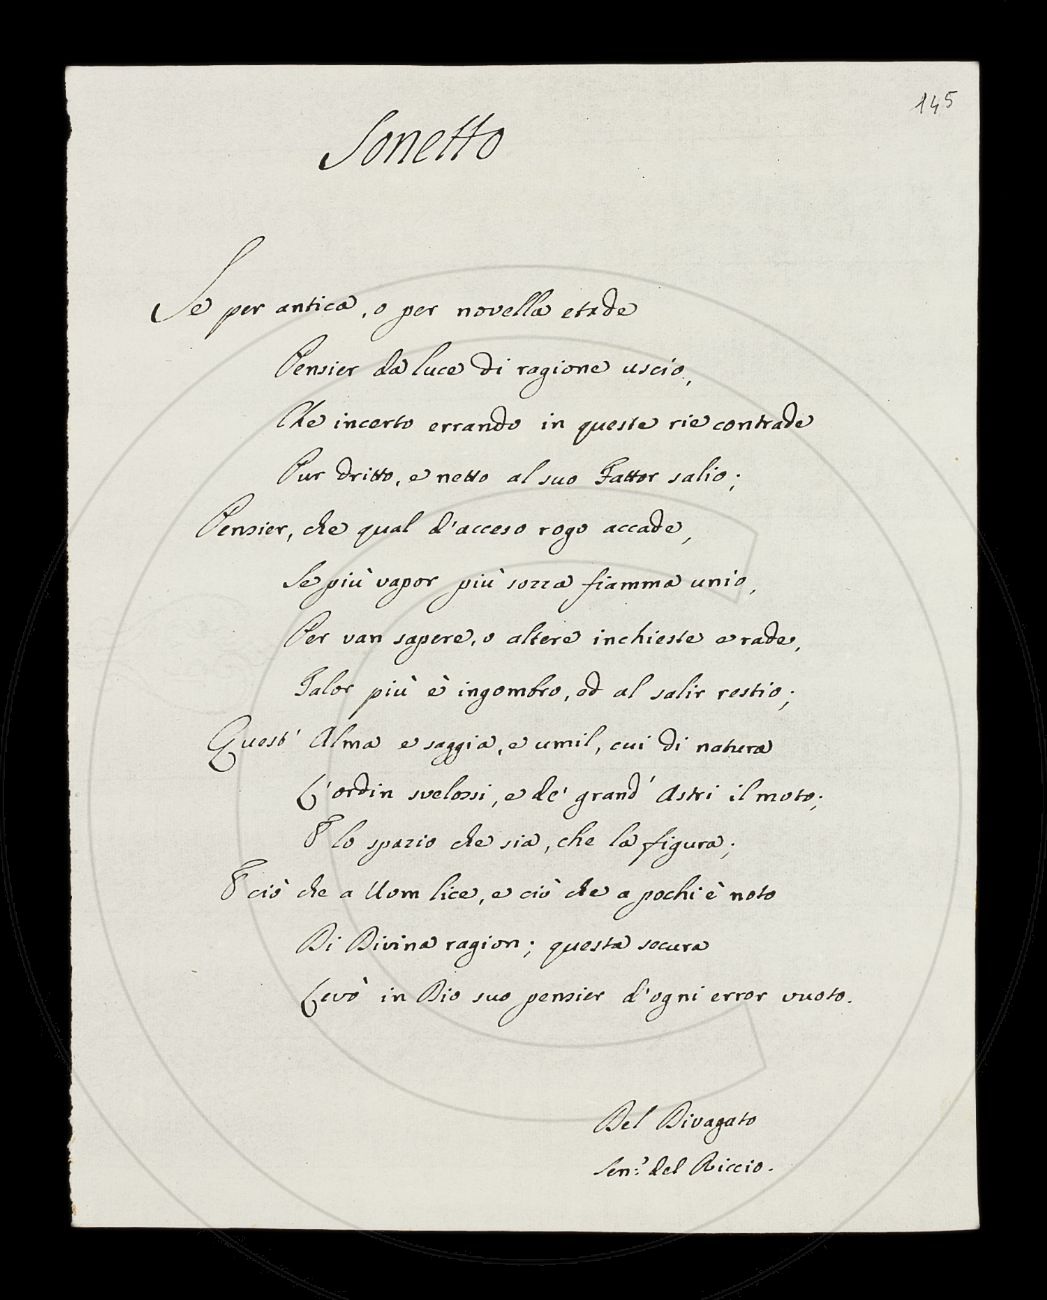 145
Sonetto
Se per antica, o per novella etade
Pensier da luce di ragione uscío,
Che incerto errando in queste rie contrade
Pur dritto, e netto al suo Fattor salio;
Pensier, che qual d'acceso rogo accade,
Se più vapor più sozza fiamma unio,
Per van sapere, o altere inchieste e rade,
Talor più è ingombro, od al salir restio;
Quest' Alma e saggia, e umil, cui di natura
L'ordin svelossi, e de' grand' Astri il moto;
E lo spazio che sia, che la figura;
E ciò che a Uom lice, e ciò che a pochi è noto
Di Divina ragion; questa secura
Levò in Dio suo pensier d'ogni error vuoto.
Del Divagato
Sen.r del Riccio.